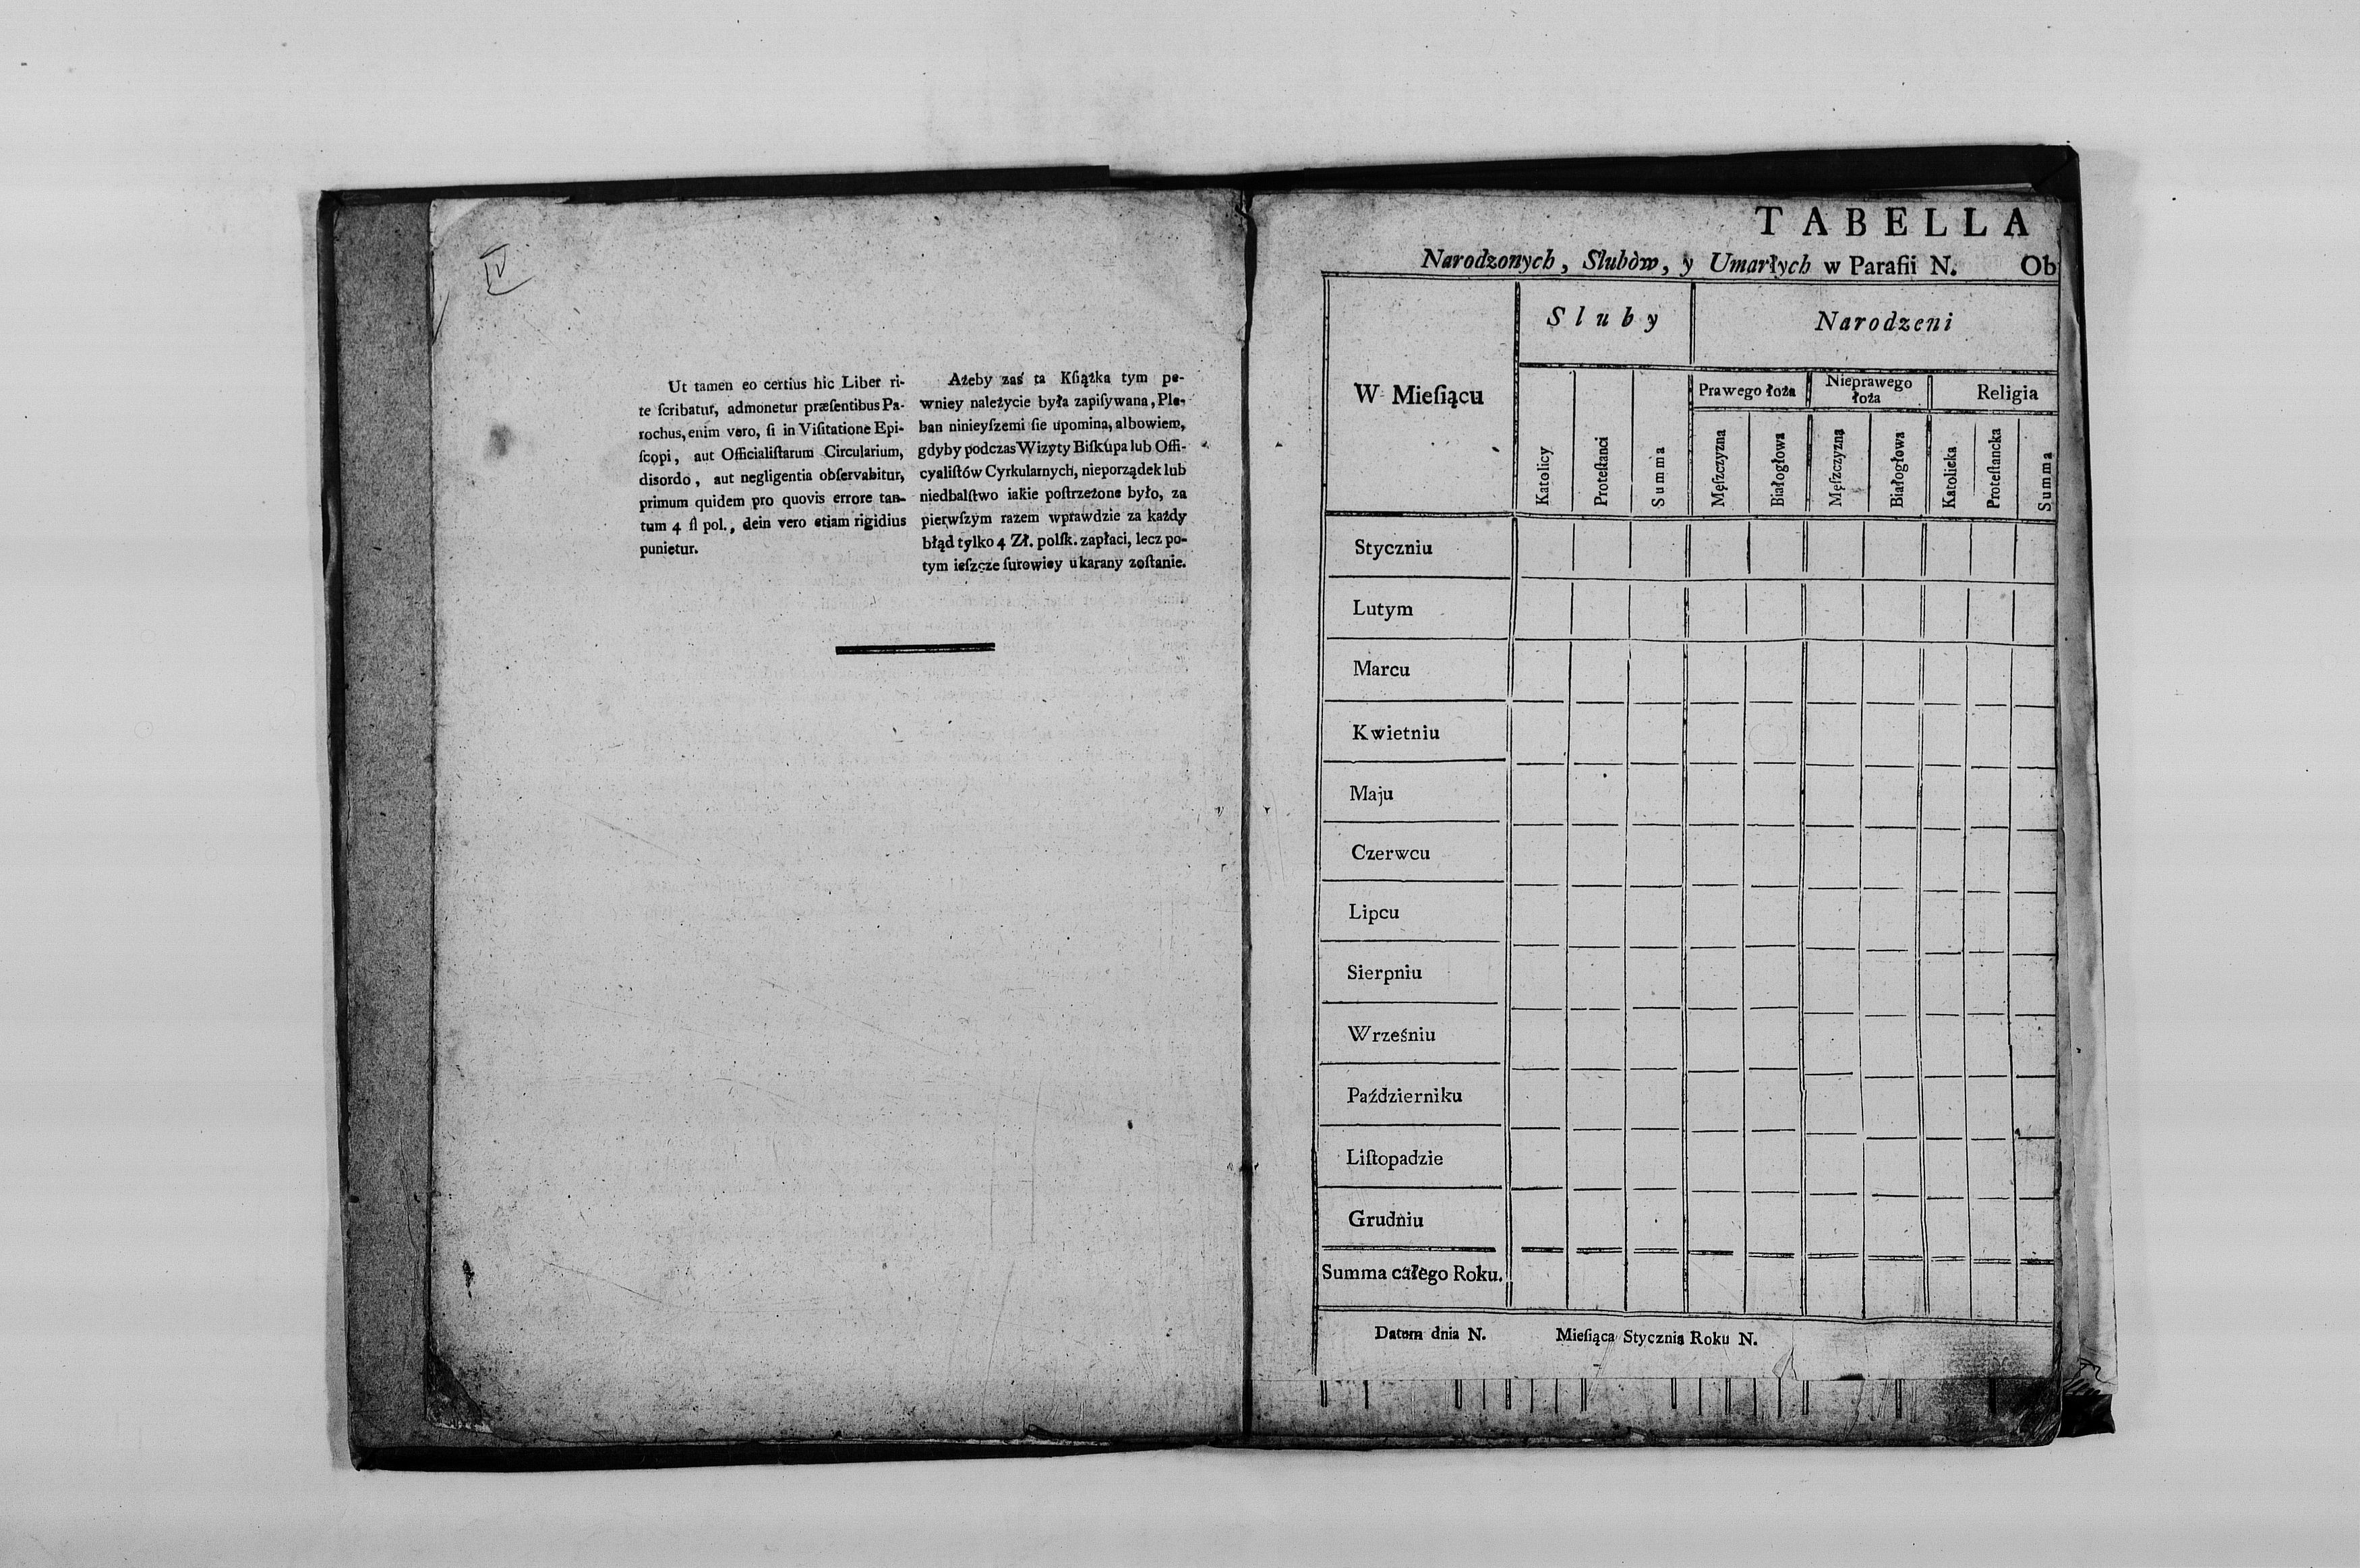 IV
Ut tamen eo certius hic Liber ri-
te ſcribatur, admonetur præſentibus Pa-
rochus, enim vero, ſi in Viſitatione Epi-
ſcopi, aut Officialiſtarum Circularium,
disordo, aut negligentia obſervabitur,
primum quidem pro quovis errore tan-
tum 4 fl pol., dein vero etiam rigidius
punietur.
Ażeby zaś ta Kſiążka tym pe-
wniey należycie była zapiſywana, Ple-
ban ninieyſzemi ſie upomina, albowiem,
gdyby podczas Wizyty Biſkupa lub Offi-
cyaliſtów Cyrkularnych, nieporządek lub
niedbalſtwo iakie poſtrzeżone było, za
pierwſzym razem wprawdzie za każdy
błąd tylko 4 Zł. polſk. zapłaci, lecz po-
tym ieſzcze ſurowiey ukarany zoſtanie.
TABELLA
Narodzonych, Slubòw, y Umarłych w Parafii N. Ob
W Mieſiącu
Sluby
Narodzeni
Prawego łoża
Nieprawego
łoża
Religia
Katolicy
Proteſtanci
Summa
Męſzczyzna
Białogłowa
Męſzczyzna
Białogłowa
Katolicka
Proteſtancka
Summa
Styczniu
Lutym
Marcu
Kwietniu
Maju
Czerwcu
Lipcu
Sierpniu
Wrześniu
Październiku
Liſtopadzie
Grudniu
Summa całego Roku.
Datum dnia N. Mieſiąca Stycznia Roku N.